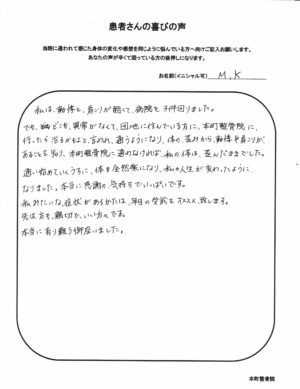 患者さんの喜びの声
当院に通われて感じた身体の変化や感想を同じように悩んでいる方へ向けご記入お願いします。
あなたの声が辛くて困っている方の後押しになります。
お名前(イニシャル可) M.K
私は、動悸と、肩こりが酷くて、病院を3件回りました。
でも、どこも、異常がなくて、団地に住んでいる方に、本町整骨院に、
行ったら治るかもよと言われ、通うようになり、体の、歪みから、動悸や肩こりが、
あることを知り、本町整骨院に通わなければ、私の体は、歪んだままでした。
通い始めていくうちに、体も全然楽になり、私の人生が変わったように
なりました。本当に感謝の気持ちでいっぱいです。
私みたいな症状があるかたは、早目の受診をオススメ致します。
先生方も、親切で、いい方々です。
本当に有り難う御座いました。
本町整骨院